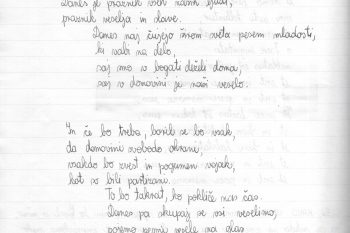 Danes je praznik vseh naših ljudi,
praznik veselja in slave.
Danes naj čujejo širom sveta pesem mladosti,
ki vabi na delo,
saj smo v bogati deželi doma,
saj v domovini je naši veselo.
In če bo treba, boril se bo vsak,
da domovini svobodo ohrani,
vsakdo bo zvest in pogumen vojak,
kot so bili partizani.
To bo takrat, ko pokliče nas čas.
Danes pa skupaj se vsi veselimo,
pojmo pesmi vsele na glas